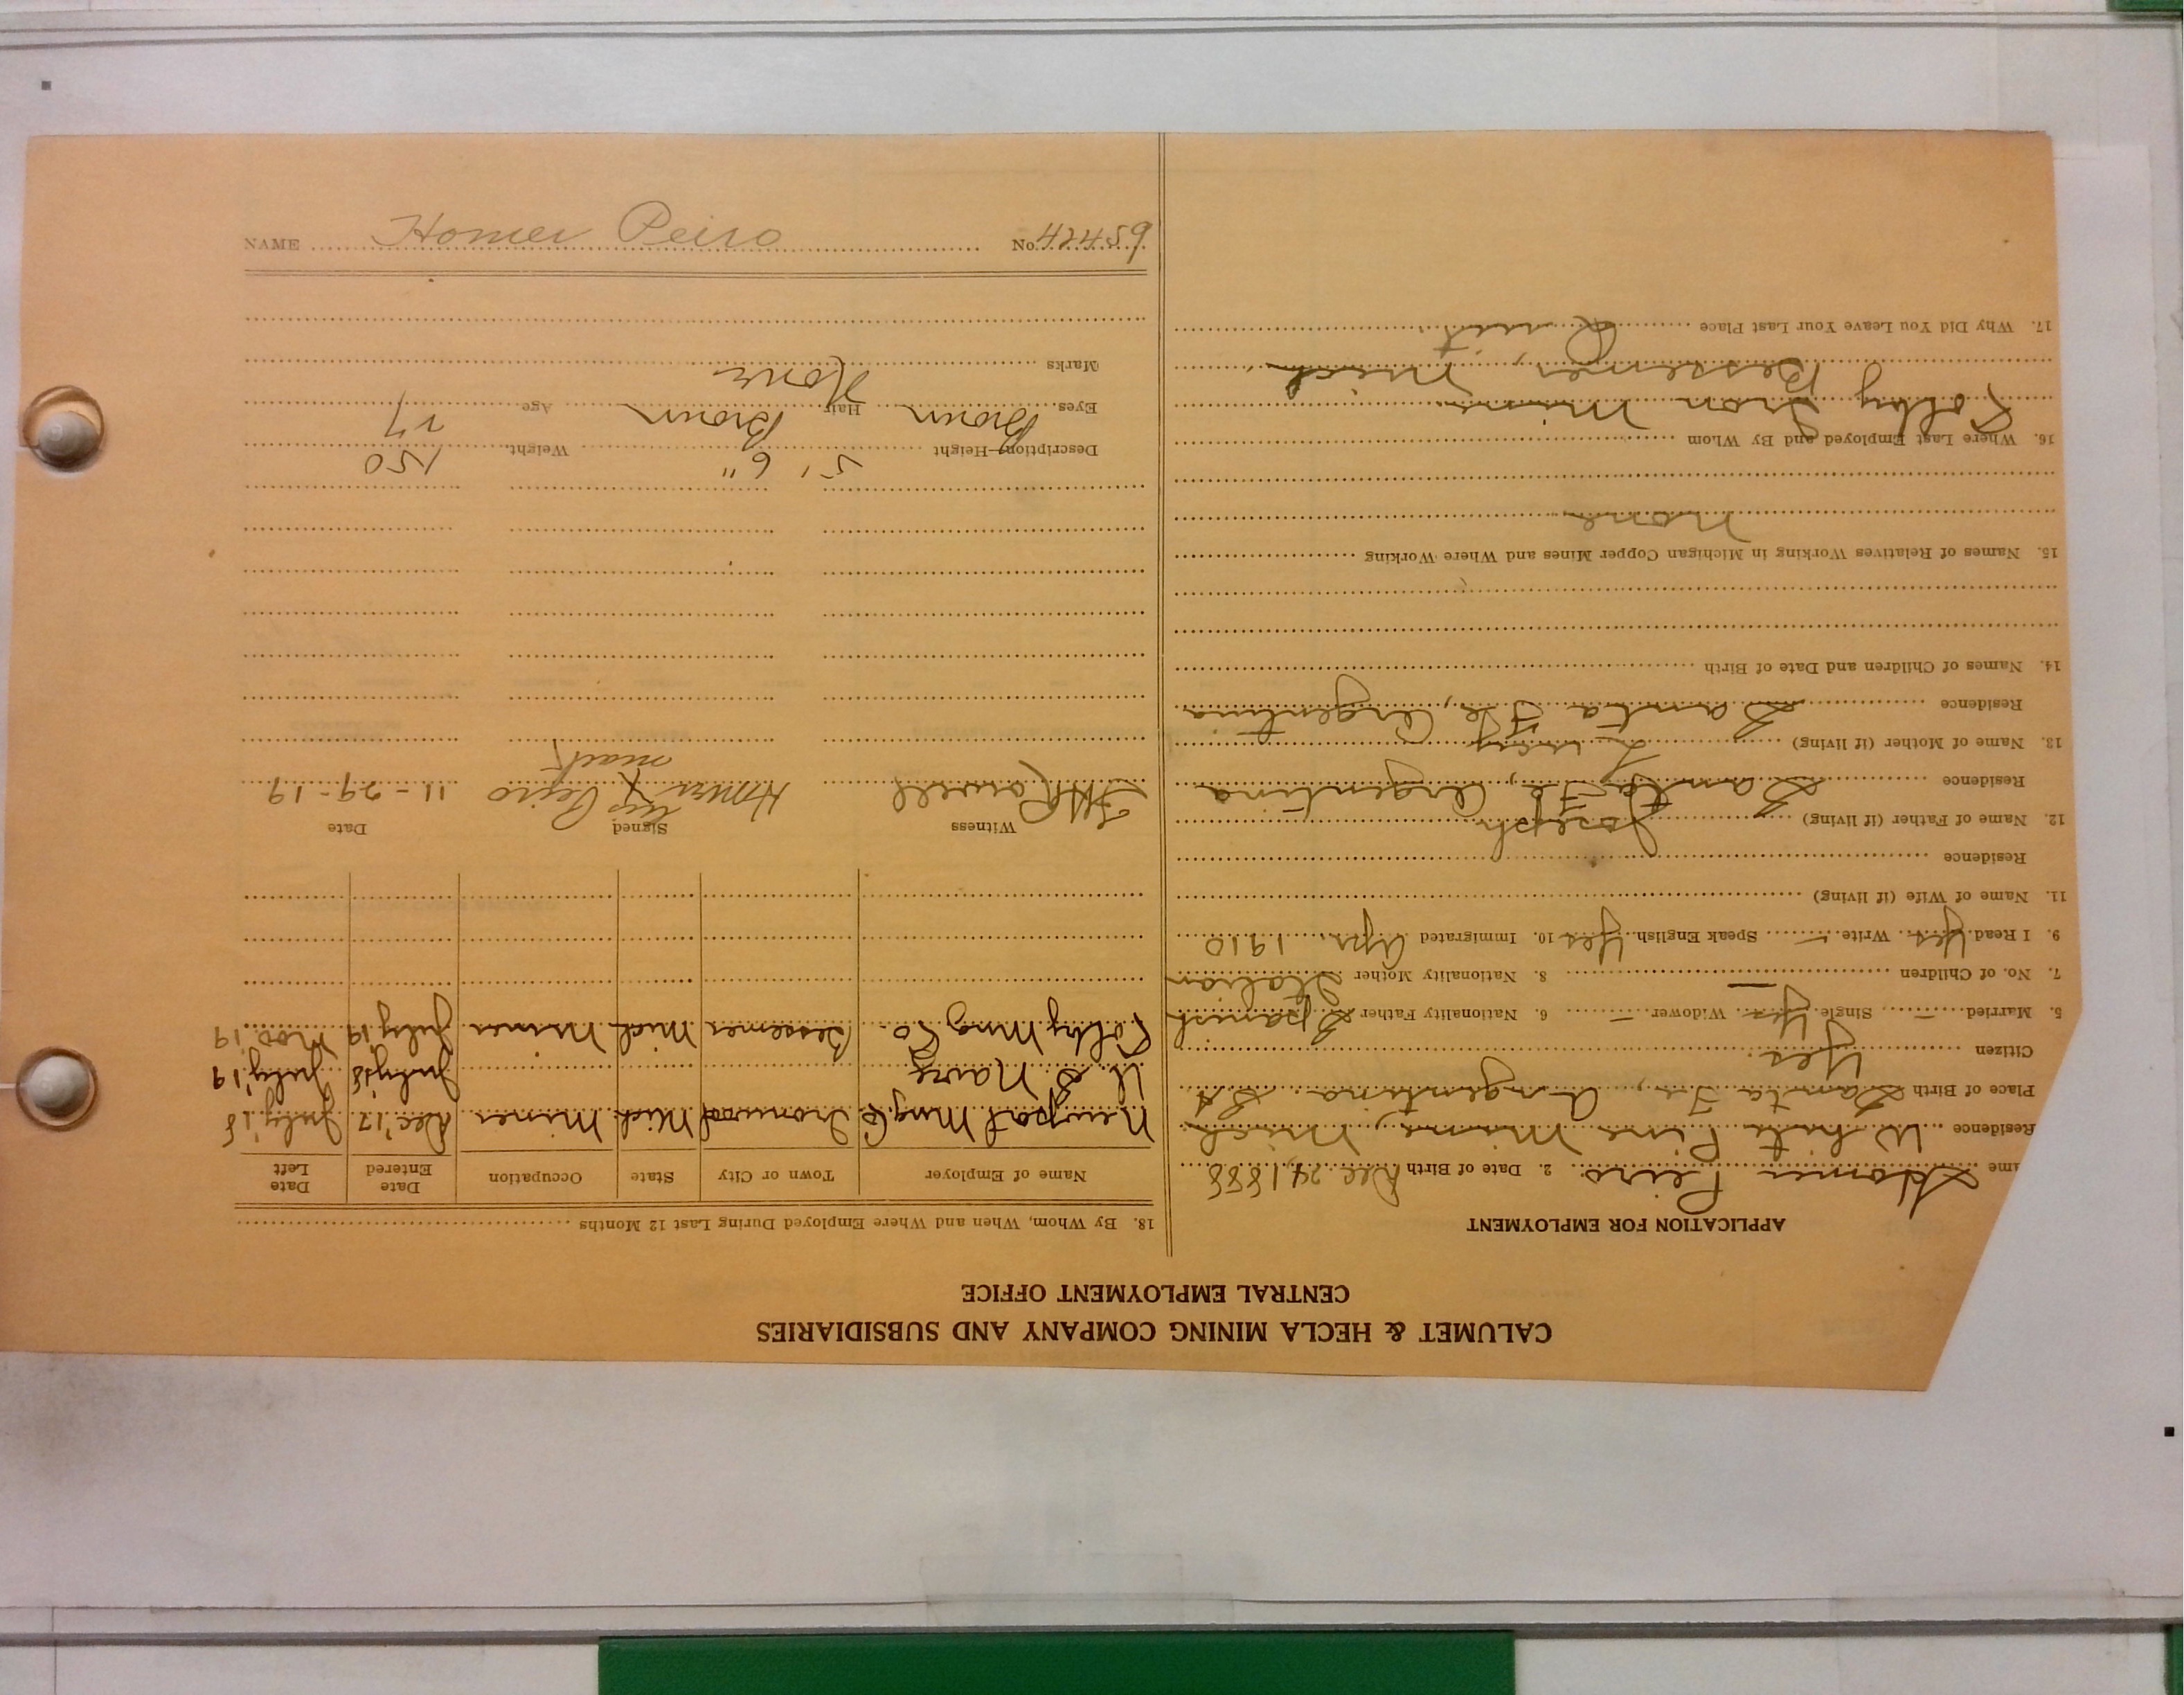 CALUMET & HECLA MINING COMPANY AND SUBSIDIARIES
CENTRAL EMPLOYMENT OFFICE
APPLICATION FOR EMPLOYMENT
ame Homer Peiro 2. Date of Birth Dec 24, 1888
Residence White Pine Mine, Mich
Place of Birth Santa Fe, Argentina SA
Citizen Yes
5. Married – Single Yes Widower – 6. Nationality Father Spanish
7. No. of Children — 8. Nationality Mother Italian
9. I Read Yes Write – Speak English Yes 10. Immigrated Apr. 1910
11. Name of Wife (if living)
Residence
12. Name of Father (if living) Joseph
Residence Santa Fe, Argentina
13. Name of Mother (if living)
Residence Santa Fe, Argentina
14. Names of Children and Date of Birth
15. Names of Relatives Working in Michigan Copper Mines and Where Working
None
16. Where Last Employed and By Whom
Colby Iron Mine
Bessemer, Mich
17. Why Did You Leave Your Last Place Quit
18. By Whom, When and Where Employed During Last 12 Months
Name of Employer Town or City State Occupation Date Entered Date Left
Newport Mng Co Ironwood Mich Miner Dec '17 July '18
U S Navy July '18 July '19
Colby Mng Co. Bessemer Mich Miner July 19 Nov. 19
Witness Signed Date
Rowell Homer X Peiro 11-29-19
his
mark
Description—Height 5' 6" Weight 150
Eyes Brown Hair Brown Age 27
Marks None
NAME Homer Peiro No. 42459